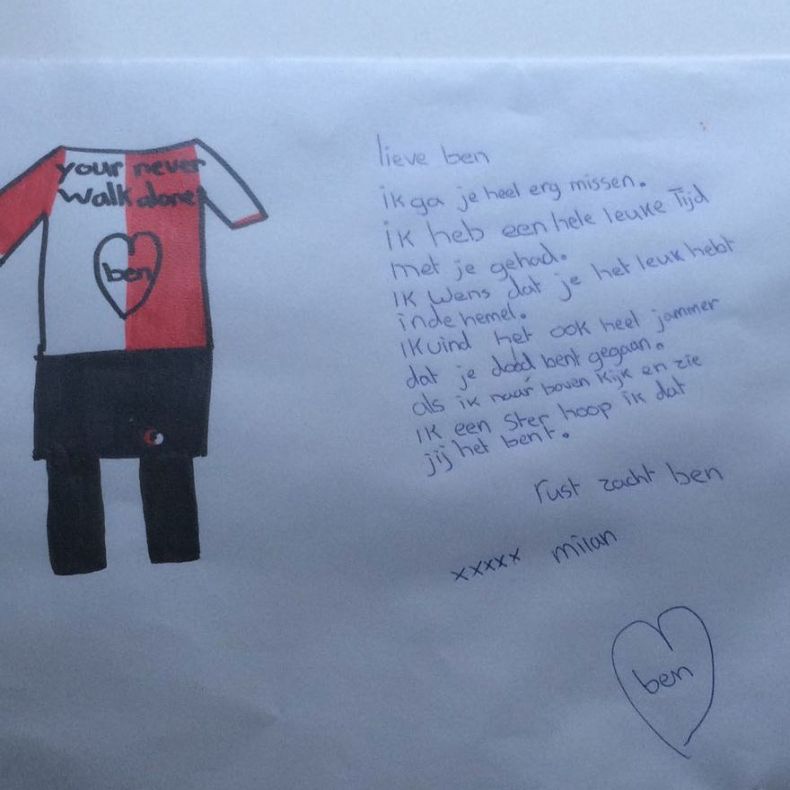 your never
walk alone
ben
lieve ben
ik ga je heel erg missen.
ik heb een hele leuke Tijd
met je gehad.
ik wens dat je het leuk hebt
inde hemel.
ik vind het ook heel jammer
dat je dood bent gegaan.
als ik naar boven kijk en zie
ik een ster hoop ik dat
jij het bent.
rust zacht ben
xxxxx milan
ben